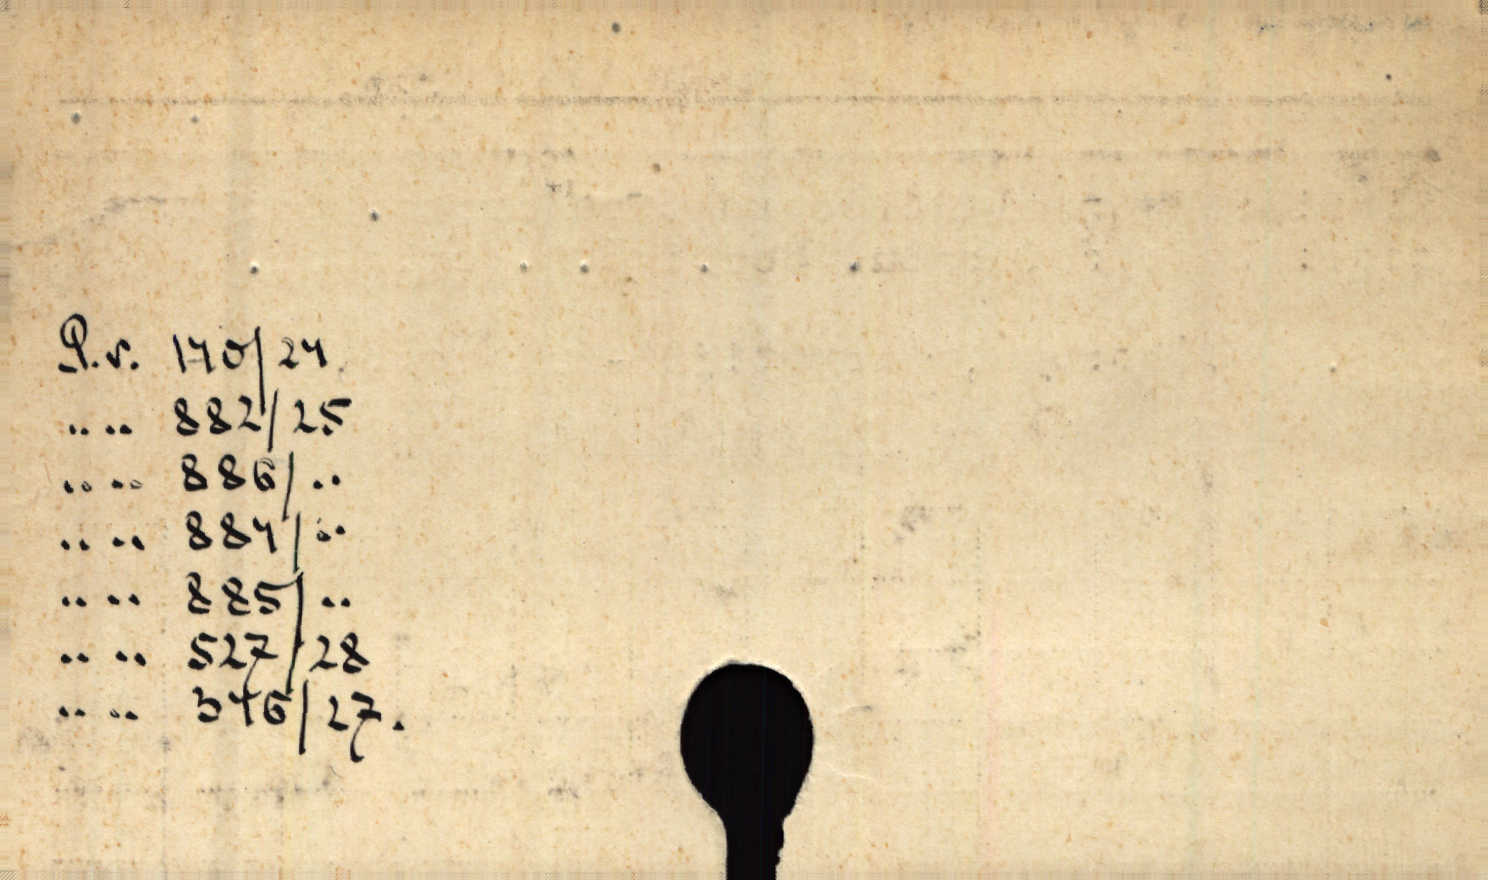 P.v. 140/24
.. .. 882/25
.. .. 886/..
.. .. 884/..
.. .. 885/..
.. .. 527/28
.. .. 546/27.